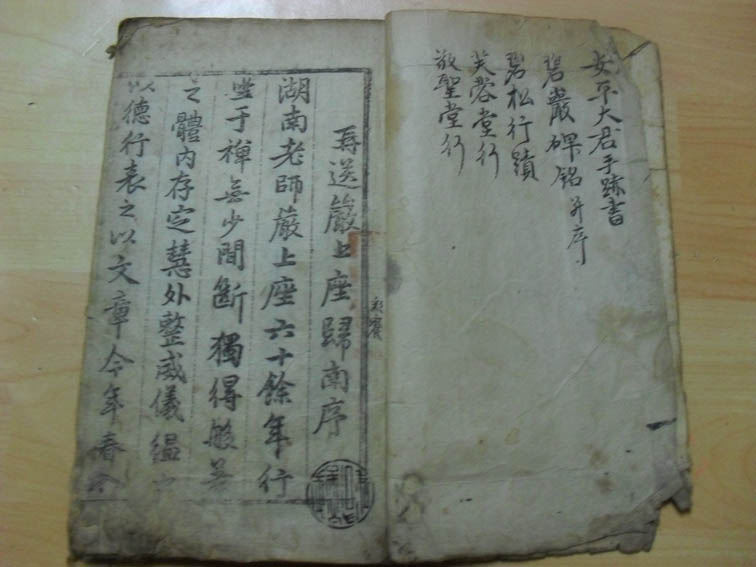 安平大君手跡書
碧巖碑銘并序
碧松行蹟
芙蓉堂行
敬聖堂行
再送嚴上座歸南序
湖南老師嚴上座六十餘年行
于禪無少間斷獨得般若
之體內存定慧外整威儀縕
以德行表之以文章今年春